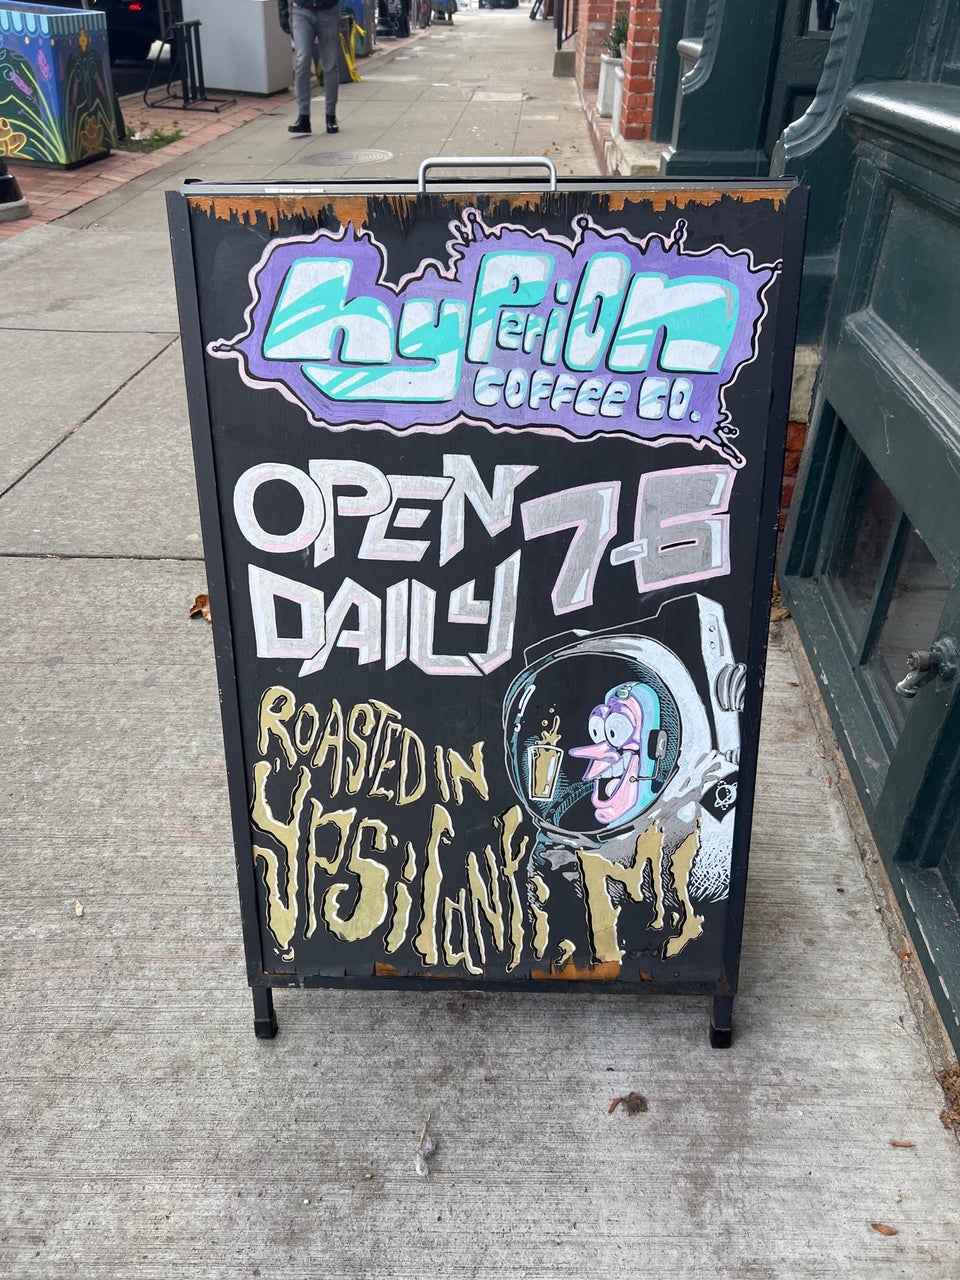 hyPeriOn
COFFee CO.
OPEN 7-6
DAILY
ROASTED IN
YPSiLANTi, Mi